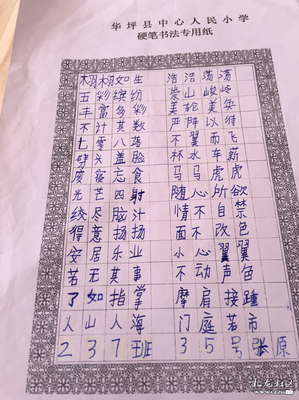 华坪县中心人民小学
硬笔书法专用纸
栩栩如生 浩浩荡荡
五彩缤纷 崇山峻岭
丰富多彩 美轮美奂
不计其数 严阵以待
七零八落 不翼而飞
劈头盖脸 杯水车薪
废寝忘食 马马虎虎
光芒四射 随心所欲
绞尽脑汁 情不自禁
得意扬扬 面不改色
安居乐业 小心翼翼
若无其事 不动声色
了如指掌 摩肩接踵
人山人海 门庭若市
237班 35号张原